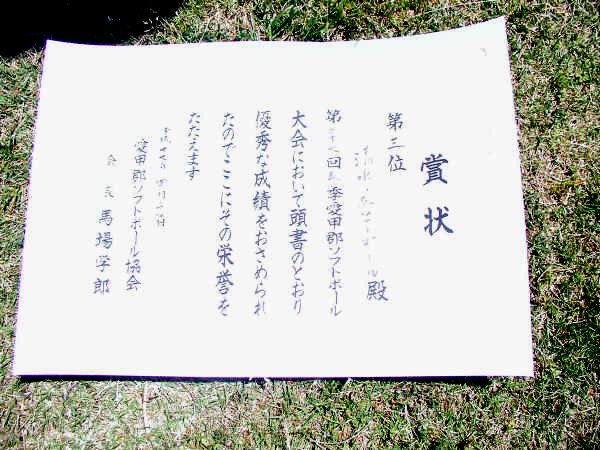 賞状
第三位
殿
第 回 季愛甲郡ソフトボール
大会において頭書のとおり
優秀な成績をおさめられ
たのでここにその栄誉を
たたえます
愛甲郡ソフトボール協会
会長 馬場学郎